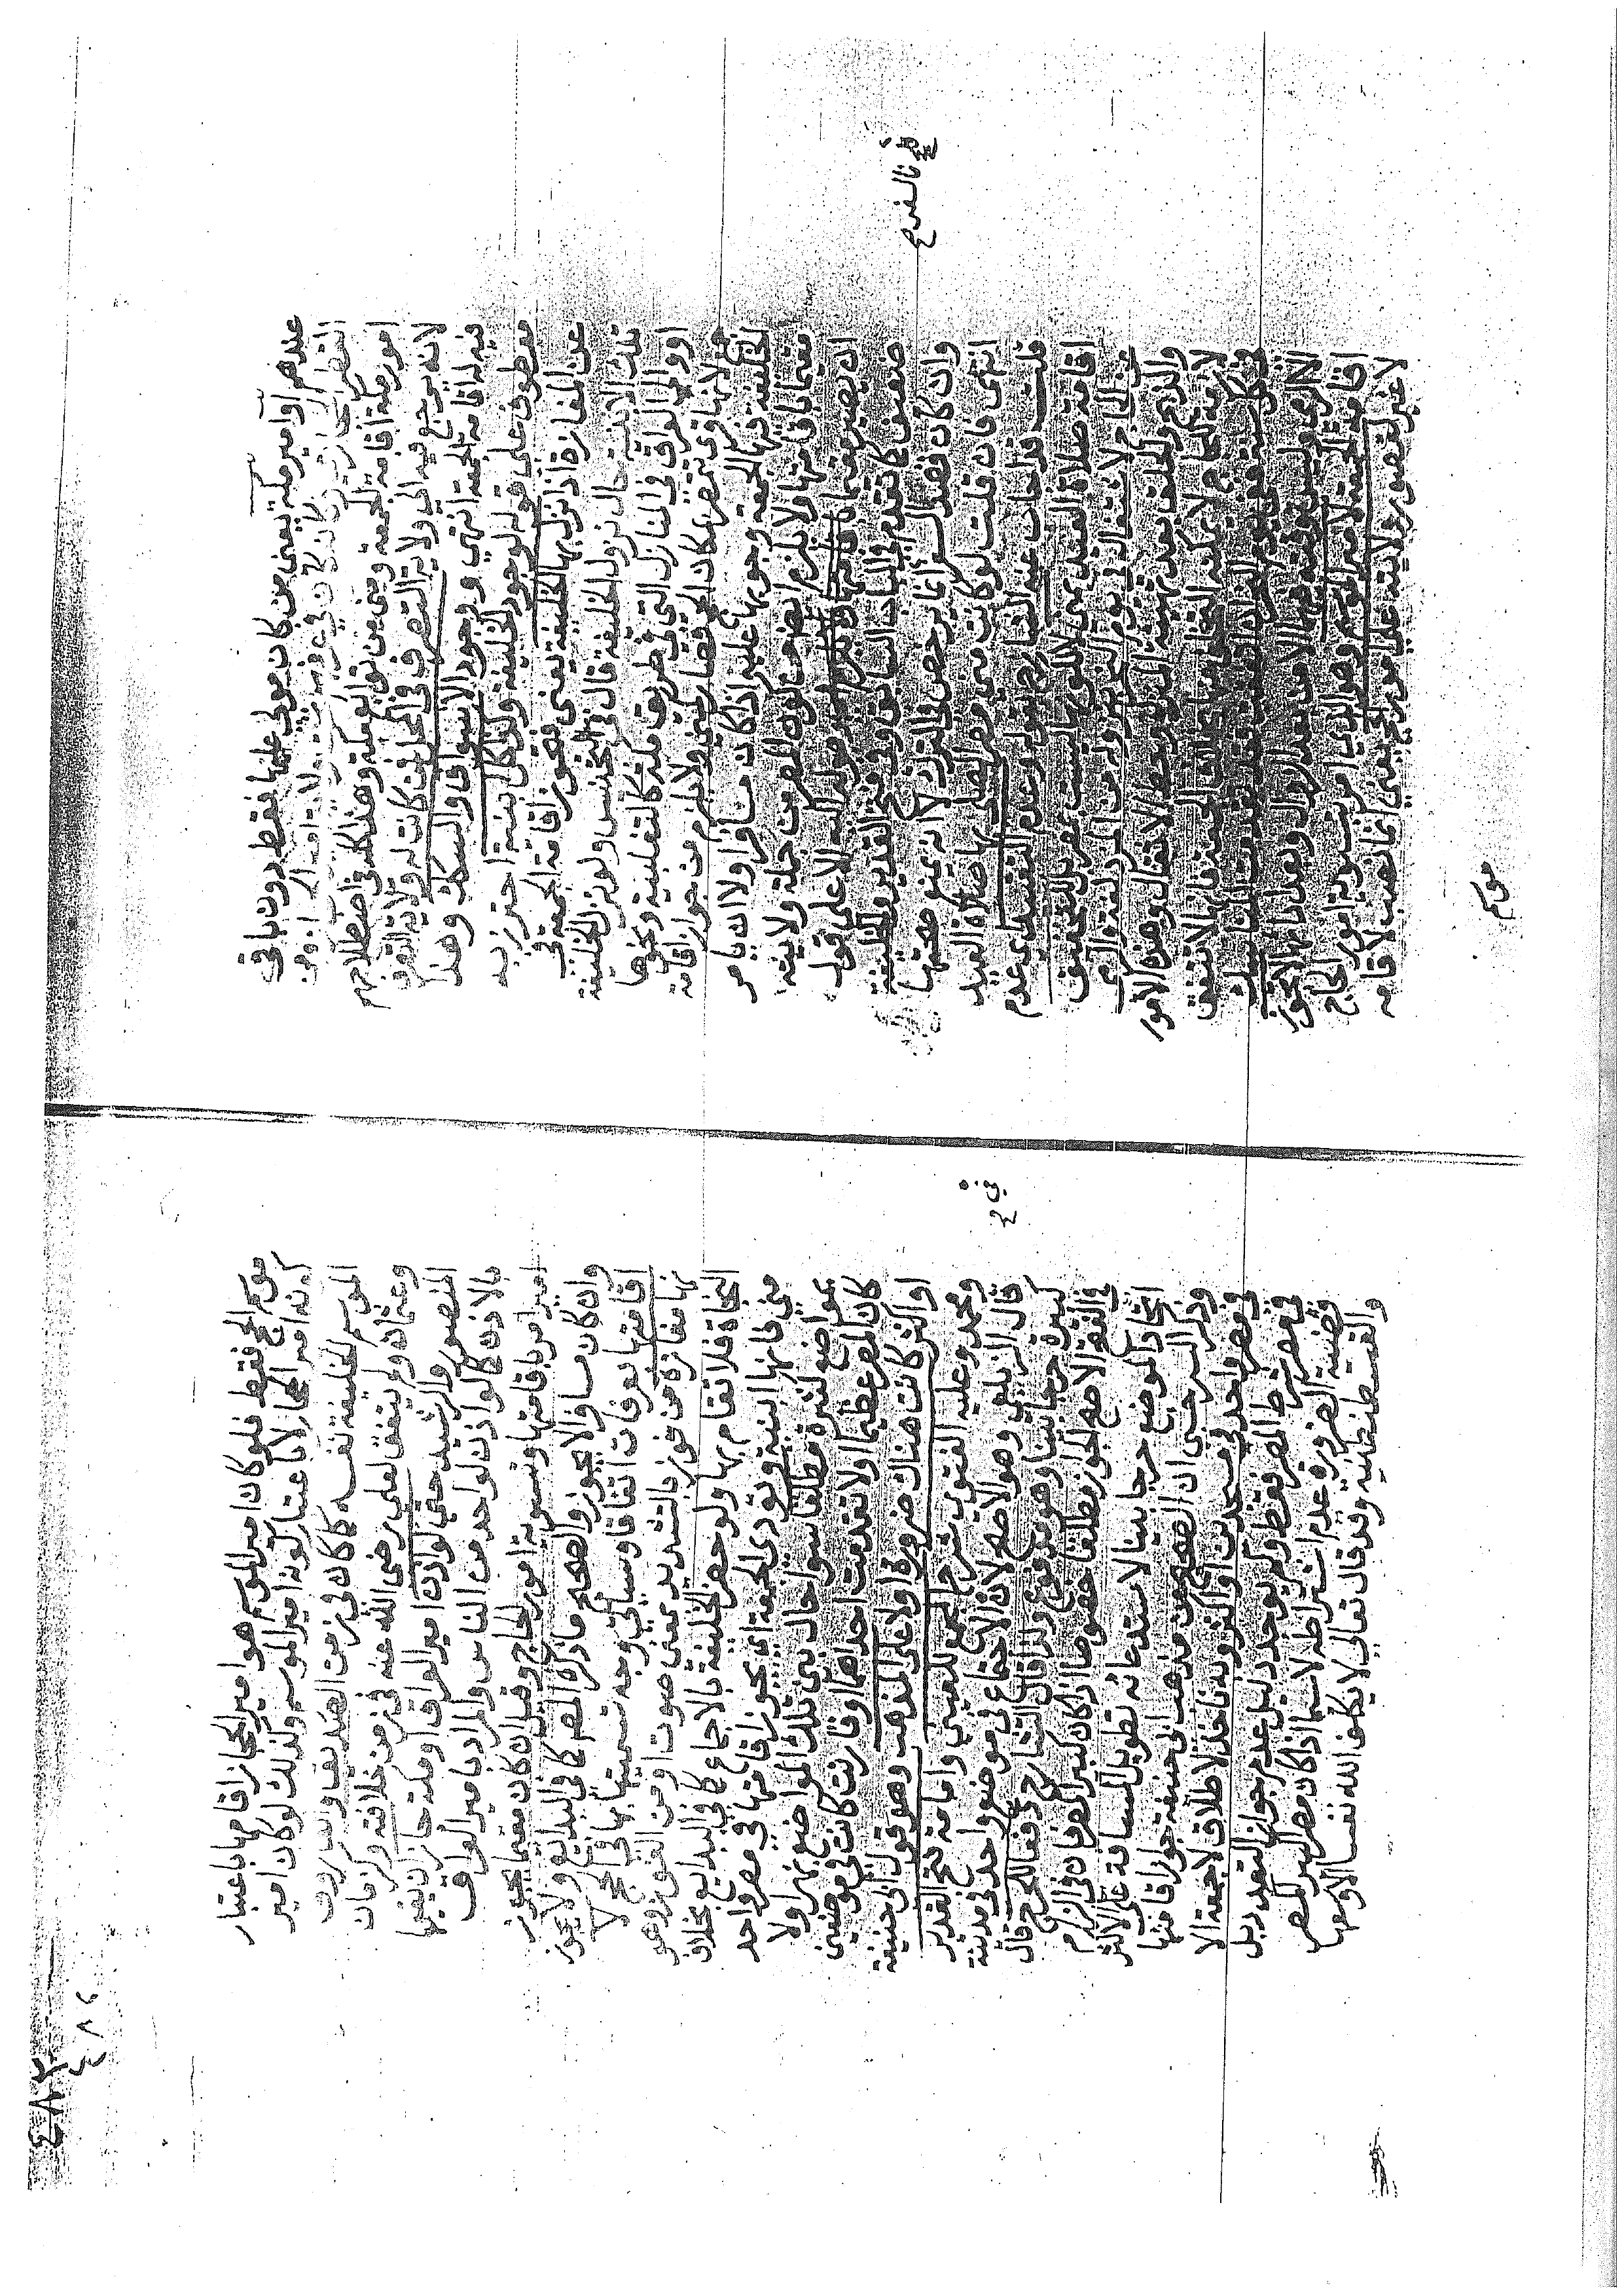 عندهم او امير مكة يعني من كان مولى عليها فقط دون باقي
القطر
امور مكة اقامة الجمعة ومنى من توابع مكة وهذا كله في اصطلاحهم
لانه يرجع فيه الى ولاية التصرف في المحلين كانت له ولاية التصرف
فيه له اقامة الجمعة انتهى ولوجود الاسواق والسكك وهذا
معطوف على قوله لوجود الخليفة ولكل ابنية احترز به
عن المفازة اذا نزل بها الخليفة يعني فتجوز اقامة الجمعة في
تلك الابنية حال نزول الخليفة قال في التجنيس ولو نزل الخليفة
او والي العراق في المنازل التي في طريق مكة كالثعلبية ونحوها
جمع لانها قرى تتمصر بمكان الحج فصار كمنى ولا يلزم من جواز اقامة
الخليفة فيها الجمعة وجوبها عليه اذا كان مسافرا ولا ان يامر
مقيما باقامتها ولا يلزم لضمن كون المصر من جملة ولايته
ان يصير مقيما وصوله اليه الا على قول
ضعيف كما تقدم في الباب السابق وفي فتح القدير والخليفة
وان كان قصد السفر انما يرخص في الترك لا انه يمنع صحتها
انتهى فان قلت لو كانت منى مصر لصلي بها صلاة العيد
قلت قد اجاب عنه الشارح بقوله وعدم التعييد اي عدم
اقامة صلاة العيد بمنى لا لكونها ليست بمصر بل للتخفيف
على الحاج لاشتغاله في يوم النحر بنزوله من المزدلفة والرمي
والذبح والحلق بعد تهيئة المنزل وحط الاثقال وهذه الامور
لازمة للحاج لا يمكنه التخلي عنها بخلاف الجمعة فانها لا تتفق
في كل سنة ففي يوم النحر ان اتفقت فقد تقدمت المناسك
الا الرمي وليس وقته الا من بعد الزوال وبعد لا تجوز
اقامة الجمعة لامير الموسم وهو الذي امر بتسوية امور الحاج
لا غير لقصور ولايته على امور الحج يعني انما نصب لاقامة
موسم
موسم الحج فقط فلو كان امير الموسم هو امير الحجاز اقام بها باعتبار
كونه امير الحجاز لا باعتبار كونه امير الموسم وكذلك لو كان امير
الموسم الخليفة نفسه كما كان في زمن الصديق والفاروق
وعثمان ولم يتفق لعلي رضي الله عنه في زمن خلافته وزمان
المنصور والرشيد حتى لو اذن امير العراق او مكة جاز ان يقيمها
بالاذن كما لو اذن لواحد من الناس والمراد بامير العراق
امير امر باقامتها وتسوية امور الحاج وقيل ان كان مقيما يجوز
وان كان مسافرا لا يجوز والصحيح ما ذكره المص كما في البدائع ولا يجوز
اقامتها بعرفات اتفاقا وسياتي وجه تسميتها بها في الحج لا
نها مفازة من فوز بالتشديد بمعنى صوت او من الفوز وهو
النجاة فلا تقام بها ولو حضر الخليفة بالاجماع كما في البدائع بخلاف
منى فانها ابنية وتؤدى الجمعة اي يجوز اقامتها في مصر واحد
بمواضع كثيرة مطلقا سواء حال بين تلك المواضع نهر او لا
كان المصر عظيما او لا تقدمت احداهما وقارنت كانت في موضعين
او اكثر كانت هناك ضرورة او لا على المذهب وهو قول ابي حنيفة
ومحمد وعليه الفتوى شرح المجمع للعيني وامامة فتح القدير
قال الزيلعي وهو الاصح لان في الاجتماع في موضع واحد في مدينة
كبيرة حرجا بينا وهو مدفوع ولذا قال الشارح دفعا للحرج قال
في الفتح الاصح الجواز مطلقا خصوصا اذا كان كبيرا فان في الزام
اتحاد الموضع حرجا بينا لاستدعائه تطويل المسافة على الاكثر
وذكر السرخسي ان الصحيح من مذهب ابي حنيفة جواز اقامتها
في مصر واحد في مسجدين واكثر وبه ناخذ لاطلاق لا جمعة الا
في مصر شرط المصر فقط ولم يوجد دليل عدم جواز التعدد بل
قضية الضرورة عدم اشتراطه لا سيما اذا كان مصر كبير كمصر
والقسطنطينية وقد قال تعالى لا يكلف الله نفسا الا وسعها